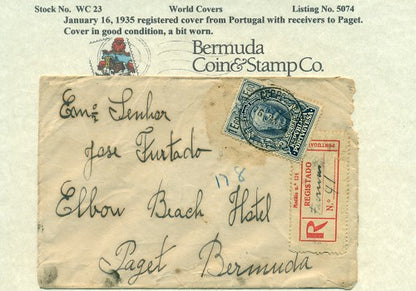 Stock No. WC 23 World Covers Listing No. 5074
January 16, 1935 registered cover from Portugal with receivers to Paget.
Cover in good condition, a bit worn.
Bermuda
Coin&StampCo.
Emº Senhor
Jose Furtado
Elbow Beach Hotel
Paget Bermuda
178
R
REGISTADO
N.º 91